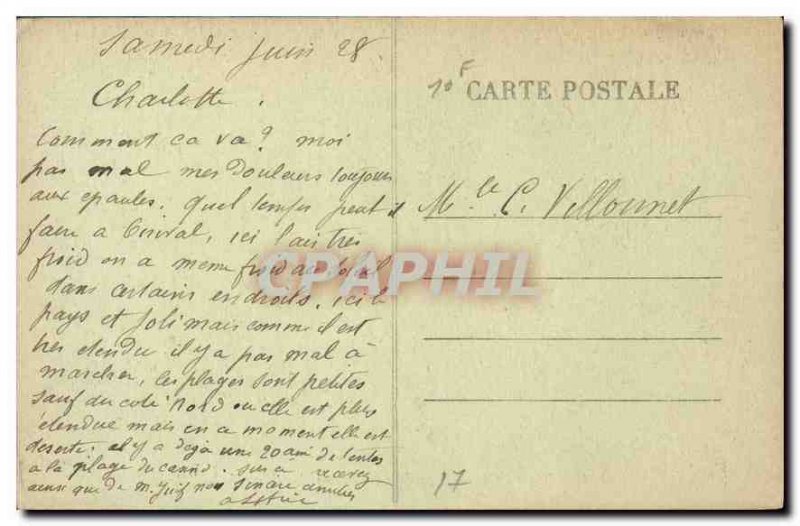 Samedi Juin 28.
Charlotte.
Comment ca va? moi
pas mal mes douleurs toujours
aux epaules. quel temps peut il
faire a ici l'air tres
froid on a meme froid au soleil
dans certains endroits. ici le
pays et Joli mais comme il est
tres etendu il y a pas mal à
marcher, les plages sont petites
sauf du coté Nord ou elle est plus
étendue mais en a moment elle est
deserte; il y a deja une 20aine de tentes
a la plage du
ainsi que de M.
10F CARTE POSTALE
Mlle C. Villounet
17
CPAPHIL